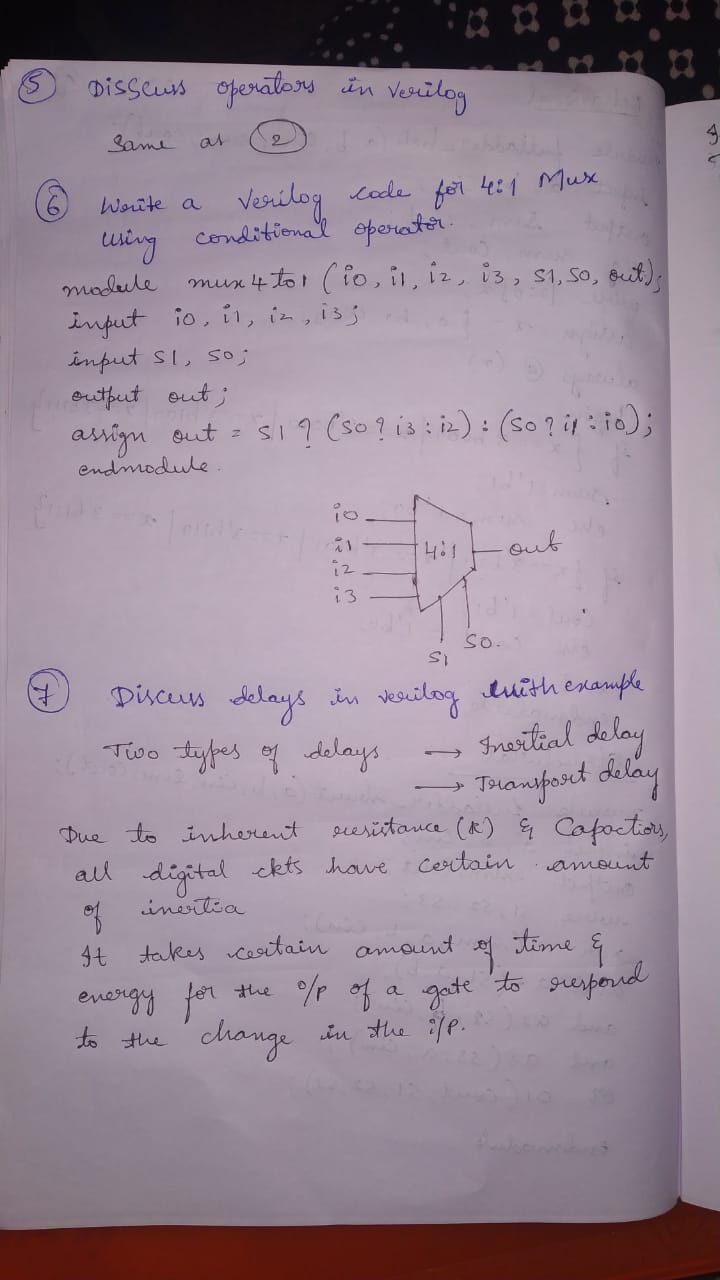 5 DISScuss operators in verilog
Same as 2
6 Write a Verilog code for 4:1 Mux
using conditional operator.
module mux4to1 (i0, i1, i2, i3, S1, S0, out);
input i0, i1, i2, i3;
input S1, S0;
output out;
assign out = S1 ? (S0 ? i3 : i2) : (S0 ? i1 : i0);
endmodule.
i0
i1
i2
i3
4:1
out
S0.
S1
7 Discuss delays in verilog with example
Two types of delays → Inertial delay
→ Transport delay
Due to inherent resistance (R) & Capactiors,
all digital ckts have certain amount
of inertia
It takes certain amount of time &
energy for the o/p of a gate to respond
to the change in the i/p.